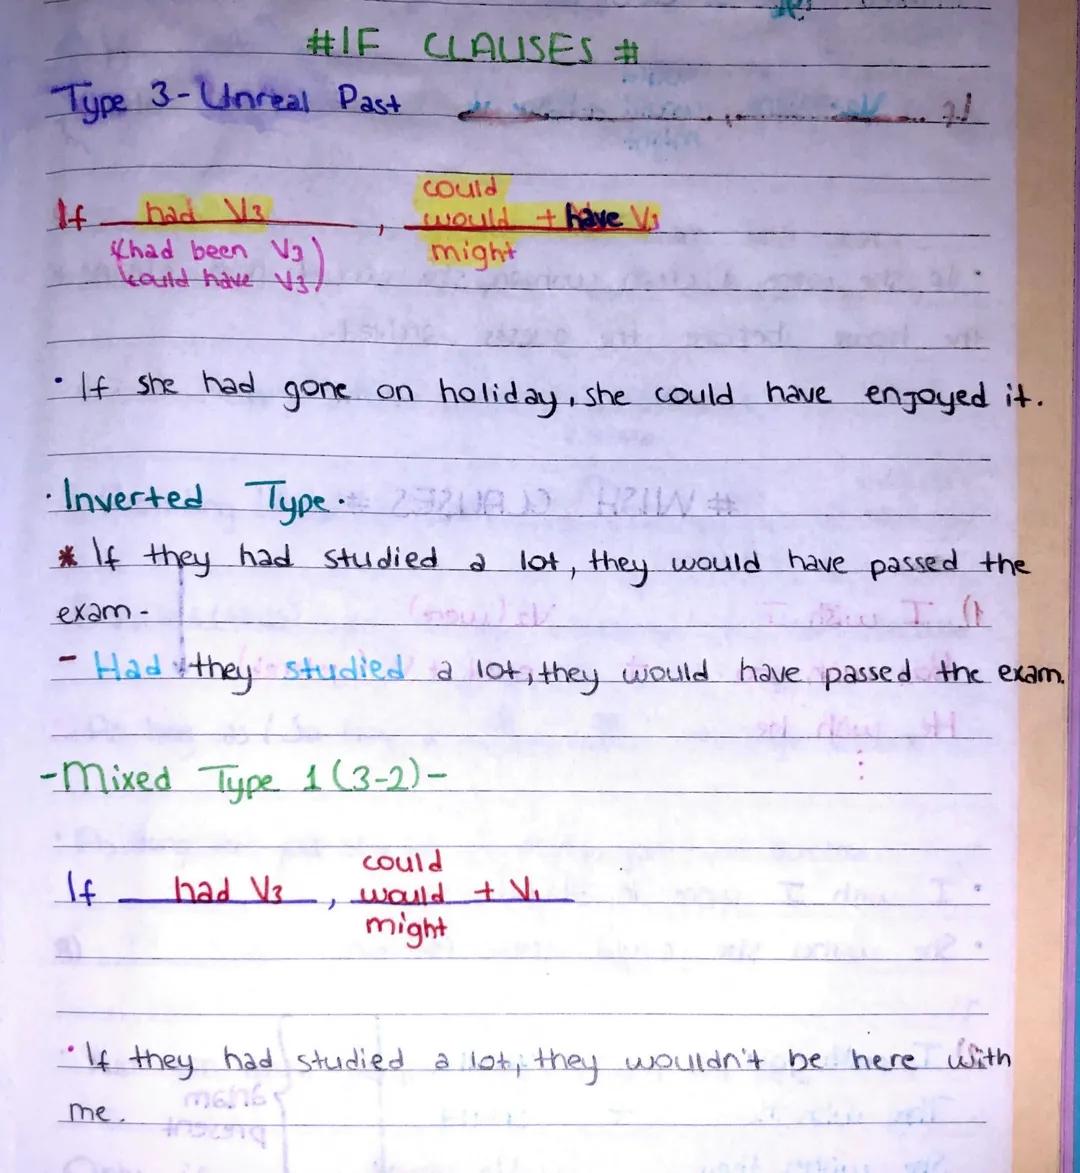 #IF CLAUSES #
Type 3-Unreal Past
could
If had V3 , would + have V3
might
(had been V3)
could have V3)
• If she had gone on holiday, she could have enjoyed it.
• Inverted Type •
* If they had studied a lot, they would have passed the
exam -
- Had they studied a lot, they would have passed the exam.
-Mixed Type 1 (3-2)-
could
If had V3 , would + V1
might
• If they had studied a lot, they wouldn't be here with
me.